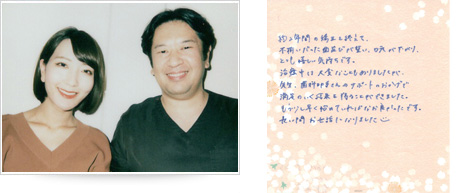 約2年間の矯正を終えて、
不揃いだった歯並びが整い、口元が下がり、
とても嬉しい気持ちです。
治療中は大変なこともありましたが、
先生、歯科助手さんのサポートのおかげで
満足のいく結果を得ることができました。
もう少し早く始めていればなお良かったです。
長い間お世話になりました